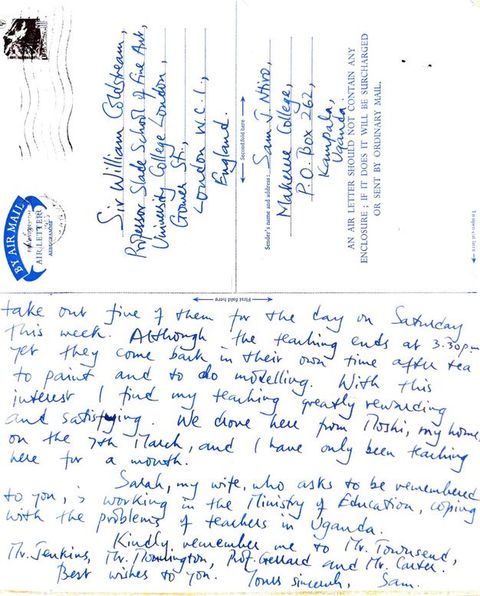 Sir William Coldstream,
Professor Slade School of Fine Art,
University College London,
Gower St.,
London W.C.1.,
England.
Second fold here
Sender's name and address: Sam J. Ntiro,
Makerere College,
P.O. Box 262,
Kampala,
Uganda.
AN AIR LETTER SHOULD NOT CONTAIN ANY
ENCLOSURE ; IF IT DOES IT WILL BE SURCHARGED
OR SENT BY ORDINARY MAIL.
BY AIR MAIL
AIR LETTER
AEROGRAMME
First fold here
take out five of them for the day on Saturday
this week. Although the teaching ends at 3.30pm
yet they come back in their own time after tea
to paint and to do modelling. With this
interest I find my teaching greatly rewarding
and satisfying. We drove here from Moshi, my home,
on the 7th March, and I have only been teaching
here for a month.
Sarah, my wife, who asks to be remembered
to you, is working in the Ministry of Education, coping
with the problems of teachers in Uganda.
Kindly remember me to Mr. Townsend,
Mr. Jenkins, Mr. Prof. and Mr. Carter.
Best wishes to you. Yours sincerely, Sam.